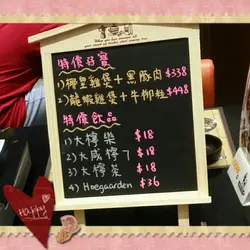 特價孖寶
1) 椰皇雞煲＋黑豚肉 $338
2) 龍蝦雞煲＋牛柳粒 $498
特價飲品
1) 大檸樂 $18
2) 大咸檸7 $18
3) 大檸茶 $18
4) Hoegaarden $36
Happy